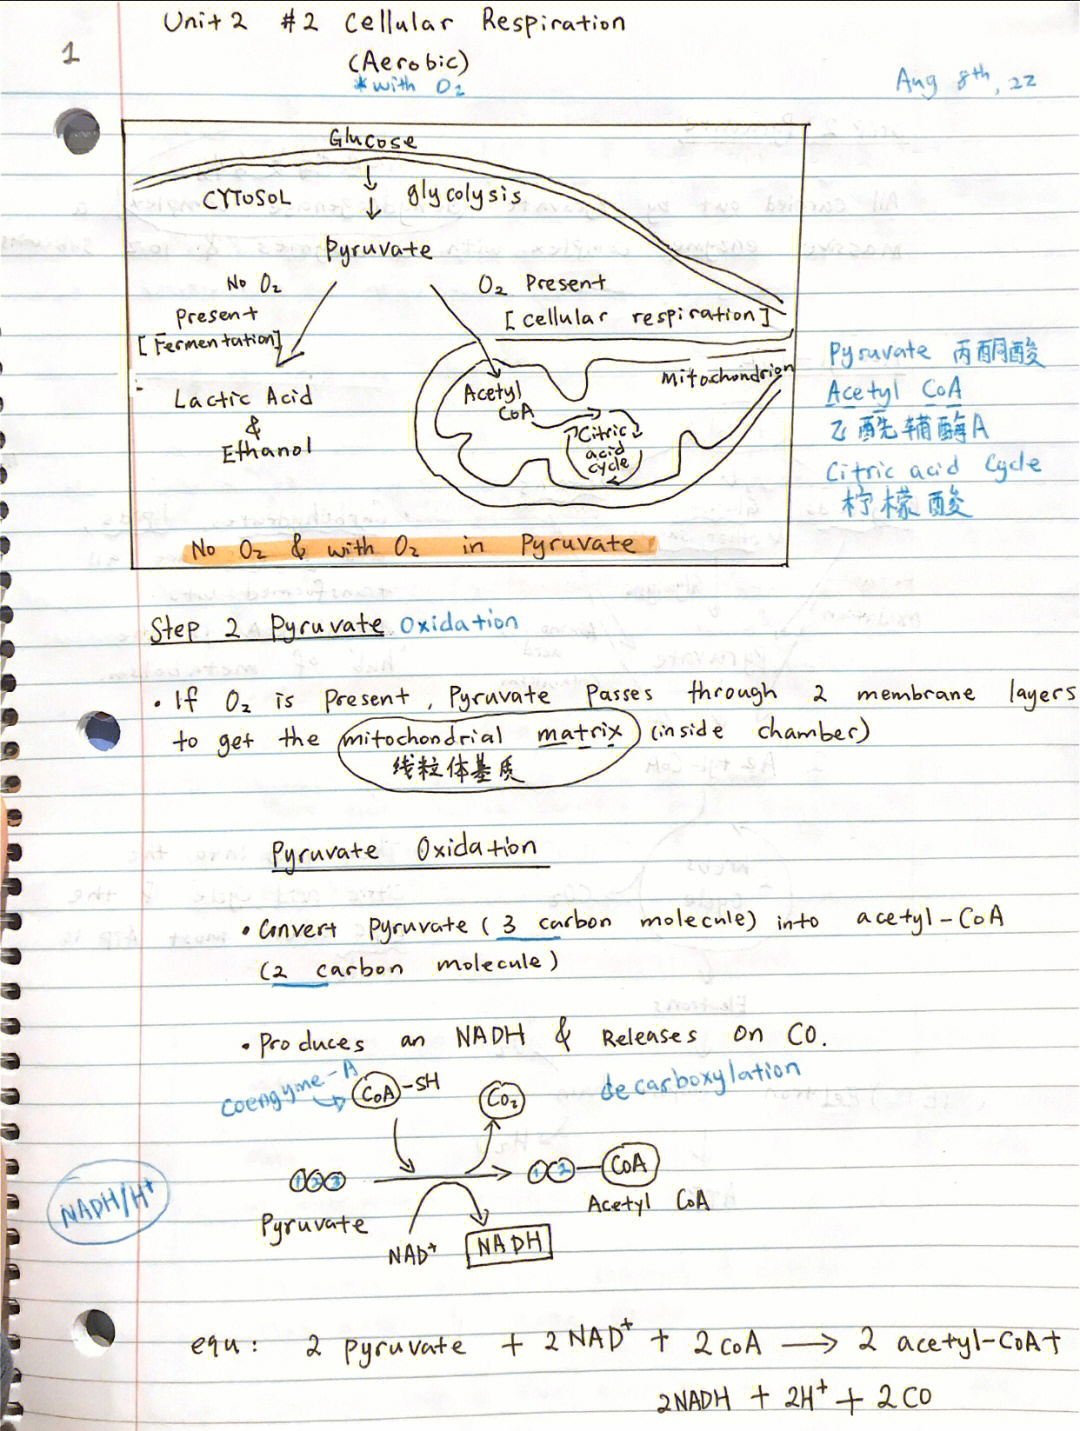 1
Unit 2 #2 Cellular Respiration
(Aerobic)
*with O₂
Aug 8th, 22
Glucose
CYTOSOL
glycolysis
Pyruvate
No O₂
Present
[Fermentation]
O₂ Present
[cellular respiration]
Lactic Acid
&
Ethanol
Mitochondrion
Acetyl
CoA
Citric
acid
cycle
No O₂ & with O₂ in Pyruvate
Pyruvate 丙酮酸
Acetyl CoA
乙酰辅酶A
Citric acid Cycle
柠檬酸
Step 2 Pyruvate Oxidation
• If O₂ is Present, Pyruvate Passes through 2 membrane layers
to get the mitochondrial matrix (inside chamber)
线粒体基质
Pyruvate Oxidation
• Convert Pyruvate (3 carbon molecule) into acetyl-CoA
(2 carbon molecule)
• Produces an NADH & Releases on CO.
Coengyme-A
CoA-SH
CO₂
decarboxylation
1 2 3
1 2 CoA
Pyruvate
Acetyl CoA
NAD⁺
NADH
NADH/H⁺
equ: 2 pyruvate + 2NAD⁺ + 2CoA → 2 acetyl-CoA+
2NADH + 2H⁺ + 2CO